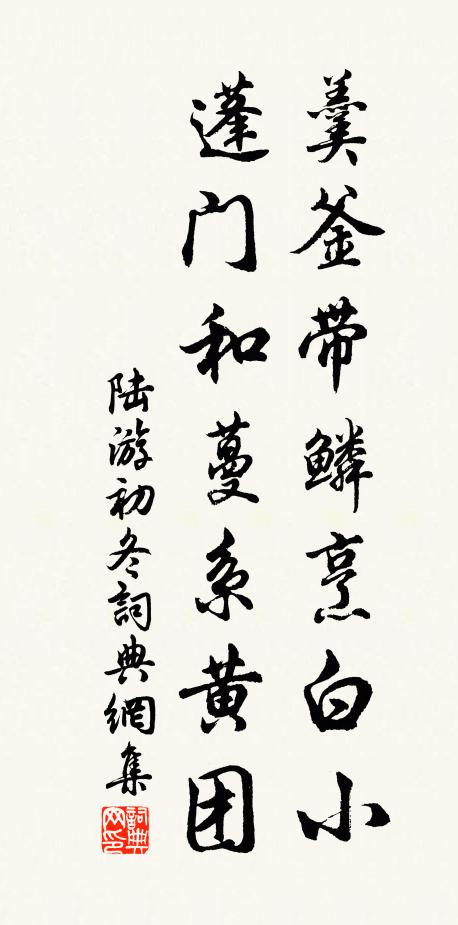 羹釜带鳞烹白小
蓬门和蔓系黄团
陆游初冬詞典網集
詞典
网印